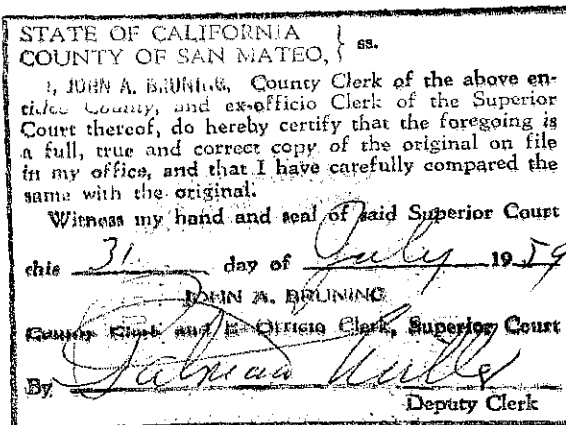 STATE OF CALIFORNIA } ss.
COUNTY OF SAN MATEO,
I, JOHN A. BRUNING, County Clerk of the above en-
titled County, and ex-officio Clerk of the Superior
Court thereof, do hereby certify that the foregoing is
a full, true and correct copy of the original on file
in my office, and that I have carefully compared the
same with the original.
Witness my hand and seal of said Superior Court
this 31 day of July 1959
JOHN A. BRUNING
County Clerk and Ex-Officio Clerk, Superior Court
By
Deputy Clerk